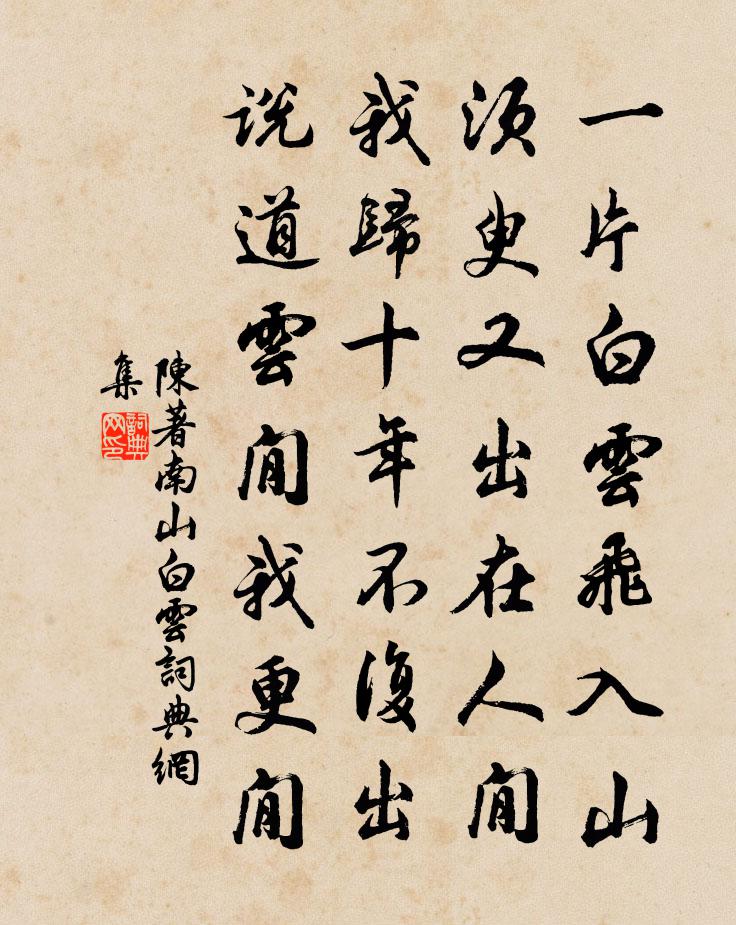 一片白雲飛入山
須臾又出在人間
我歸十年不復出
説道雲閒我更閒
陳著南山白雲詞典網
集
詞典
网印